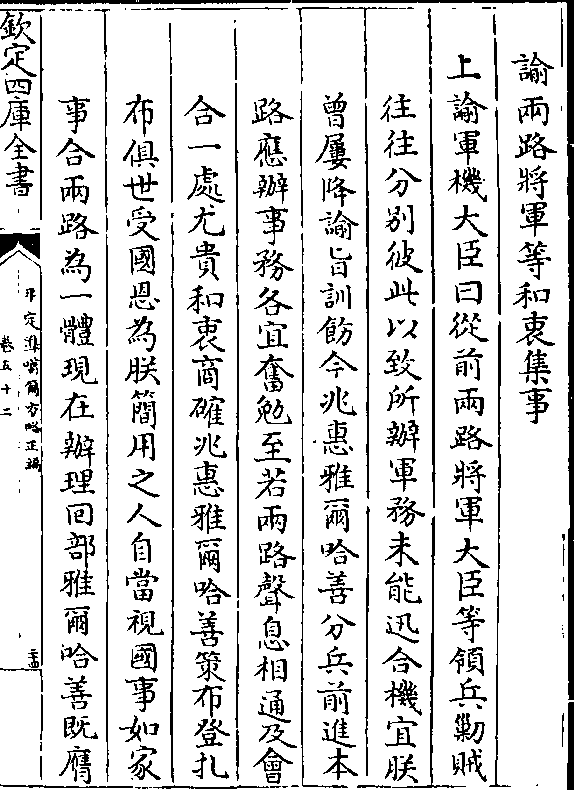 諭兩路將軍等和衷集事
上諭軍機大臣曰從前兩路將軍大臣等領兵勦賊
往往分別彼此以致所辦軍務未能迅合機宜朕
曾屢降諭旨訓飭今兆惠雅爾哈善分兵前進本
路應辦事務各宜奮勉至若兩路聲息相通及會
合一處尤貴和衷商確兆惠雅爾哈善策布登扎
布俱世受國恩為朕簡用之人自當視國事如家
事合兩路為一體現在辦理回部雅爾哈善既膺
欽定四庫全書
平定準噶爾方略正編
卷五十二
二十四